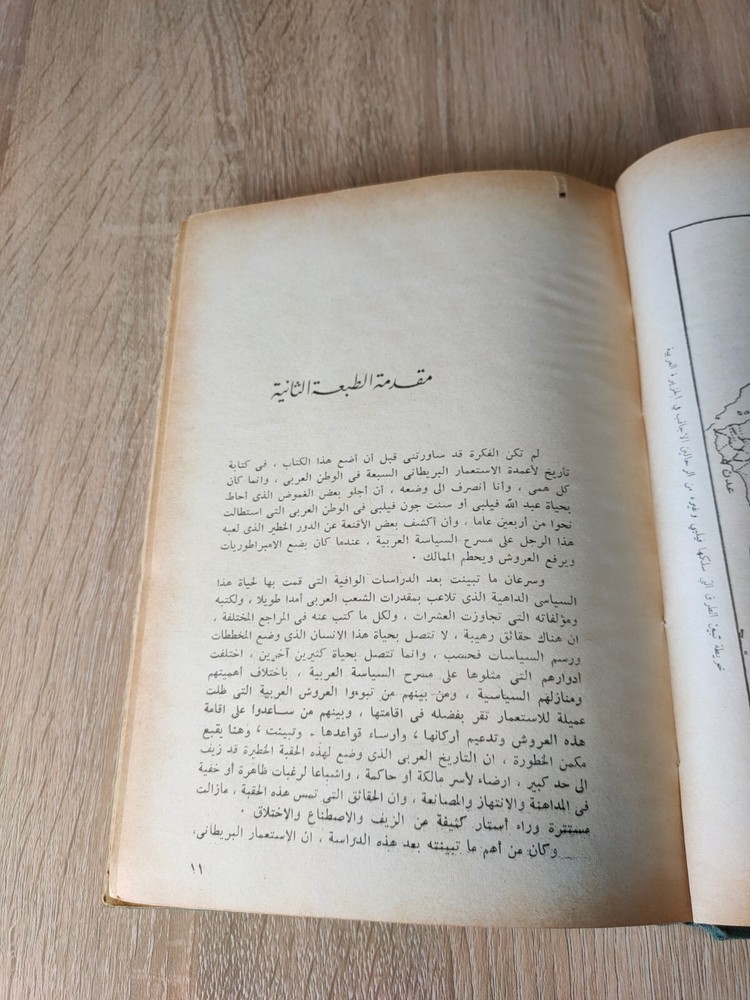 مقدمة الطبعة الثانية
لم تكن الفكرة قد ساورتنى قبل أن أضع هذا الكتاب ، فى كتابة
تأريخ لأعمدة الاستعمار البريطانى السبعة فى الوطن العربى ، وانما كان
كل همى ، وأنا أنصرف الى وضعه ، أن أجلو بعض الغموض الذى أحاط
بحياة عبد الله فيلبى أو سنت جون فيلبى فى الوطن العربى التى استطالت
نحوا من أربعين عاما ، وأن أكشف بعض الأقنعة عن الدور الخطير الذى لعبه
هذا الرجل على مسرح السياسة العربية ، عندما كان يضع الامبراطوريات
ويرفع العروش ويحطم الممالك .
وسرعان ما تبينت بعد الدراسات الوافية التى قمت بها لحياة هذا
السياسى الداهية الذى تلاعب بمقدرات الشعب العربى أمدا طويلا ، ولكتبه
ومؤلفاته التى تجاوزت العشرات ، ولكل ما كتب عنه فى المراجع المختلفة ،
ان هناك حقائق رهيبة ، لا تتصل بحياة هذا الانسان الذى وضع المخططات
ورسم السياسات فحسب ، وانما تتصل بحياة كثيرين آخرين ، اختلفت
ادوارهم التى مثلوها على مسرح السياسة العربية ، باختلاف أهميتهم
ومنازلهم السياسية ، ومن بينهم من تبوءوا العروش العربية التى ظلت
عميلة للاستعمار تقر بفضله فى اقامتها ، وبينهم من ساعدوا على اقامة
هذه العروش وتدعيم أركانها ، وأرساء قواعدها . وتبينت ، وهنا يقبع
مكمن الخطورة ، ان التاريخ العربى الذى وضع لهذه الحقبة الخطيرة قد زيف
الى حد كبير ، ارضاء لأسر مالكة أو حاكمة ، واشباعا لرغبات ظاهرة أو خفية
فى المداهنة والانتهاز والمصانعة ، وان الحقائق التى تمس هذه الحقبة ، مازالت
مستترة وراء أستار كثيفة من الزيف والاصطناع والاختلاق .
وكان من أهم ما تبينته بعد هذه الدراسة ، ان الاستعمار البريطانى،
١١
خريطة تبين الطرق التي سلكها فيلبي وغيره من الرحالين الاجانب في الجزيرة العربية
عدن